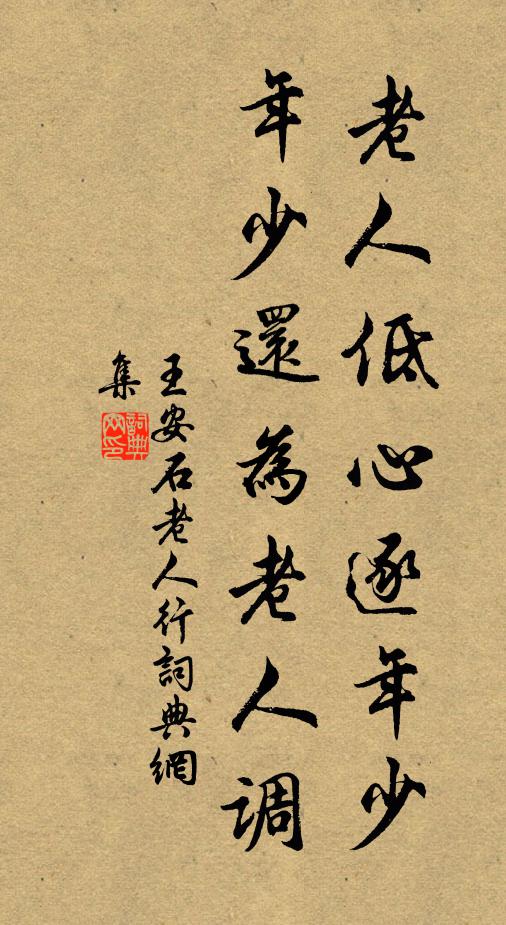 老人低心逐年少
年少還為老人調
王安石老人行詞典網
集
詞典
网印